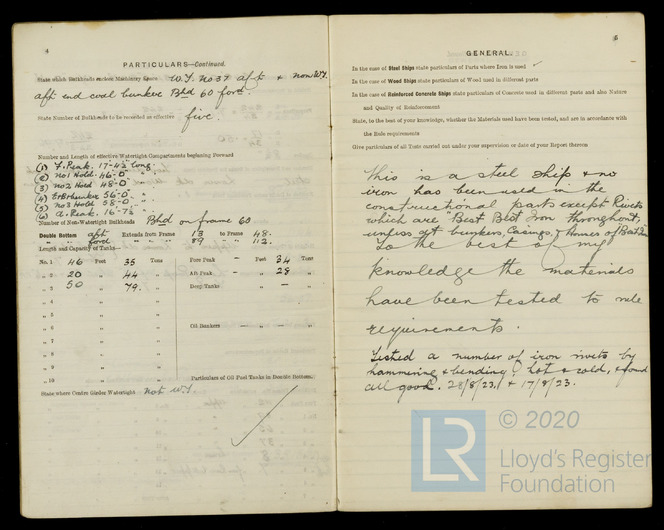 4
PARTICULARS—Continued.
State which Bulkheads enclose Machinery Space W.T. No 37 aft & non WT.
aft end coal bunker Bhd 60 ford.
State Number of Bulkheads to be recorded as effective five.
Number and Length of effective Watertight Compartments beginning Forward
(1) F. Peak. 17-4½" long.
(2) No1 Hold. 46-0" "
(3) No2 Hold 48-0" "
(4) ER & bunker 56-0" "
(5) No3 Hold 58-0" "
(6) A. Peak. 16-7½"
Number of Non-Watertight Bulkheads Bhd on frame 60
Double Bottom aft Extends from Frame 13 to Frame 48.
" " ford " " 89 " " 112.
Length and Capacity of Tanks—
No. 1 46 Feet 35 Tons Fore Peak – Feet 34 Tons
" 2 20 " 44 " Aft Peak – " 28 "
" 3 50 " 79. " Deep Tanks " – "
" 4 " "
" 5 " "
" 6 " " Oil Bunkers — " — "
" 7 " "
" 8 " "
" 9 " "
" 10 " " Particulars of Oil Fuel Tanks in Double Bottom.
State where Centre Girder Watertight Not W.T.
5
GENERAL.
In the case of Steel Ships state particulars of Parts where Iron is used
In the case of Wood Ships state particulars of Wood used in different parts
In the case of Reinforced Concrete Ships state particulars of Concrete used in different parts and also Nature
and Quality of Reinforcement
State, to the best of your knowledge, whether the Materials used have been tested, and are in accordance with
the Rule requirements
Give particulars of all Tests carried out under your supervision or date of your Report thereon
This is a steel ship & no
iron has been used in the
constructional parts except Rivets
which are "Best Best Iron throughout,
unless at bunkers, Casings, & Houses of Best Iron
To the best of my
knowledge the materials
have been tested to rule
requirements.
Tested a number of iron rivets by
hammering & bending hot & cold, & found
all good. 28/8/23, & 17/8/23.
© 2020
LR
Lloyd's Register
Foundation